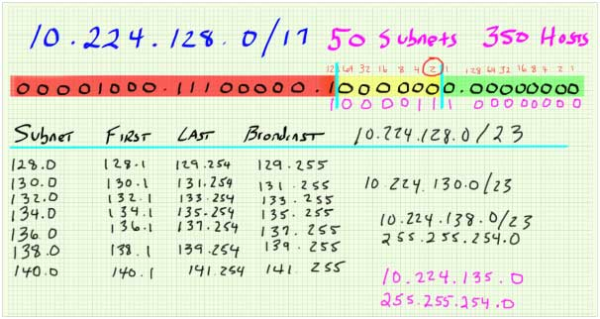 10.224.128.0/17 50 Subnets 350 Hosts
128 64 32 16 8 4 2 1 128 64 32 16 8 4 2 1
00001000.11100000.10000000.00000000
1000011 00000000
Subnet First Last Broadcast 10.224.128.0/23
128.0 128.1 129.254 129.255
130.0 130.1 131.254 131.255 10.224.130.0/23
132.0 132.1 133.254 133.255
134.0 134.1 135.254 135.255 10.224.138.0/23
136.0 136.1 137.254 137.255 255.255.254.0
138.0 138.1 139.254 139.255
140.0 140.1 141.254 141.255 10.224.135.0
255.255.254.0